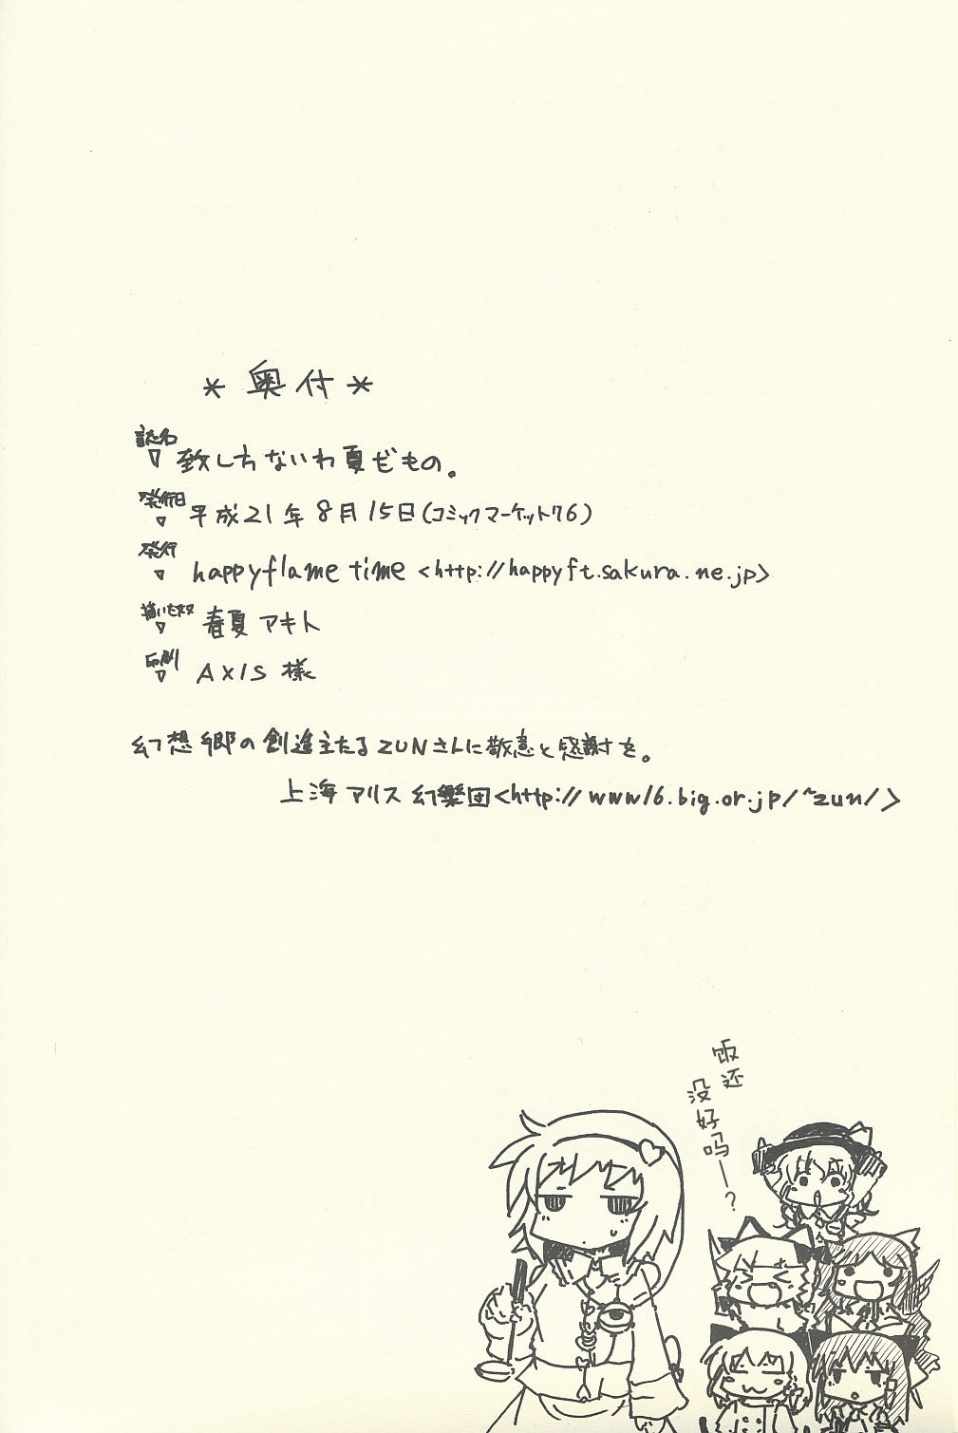 *奥付*
誌名
致し方ないわ夏だもの。
発行日
平成21年8月15日(コミックマーケット76)
発行
happyflame time <http://happyft.sakura.ne.jp>
描いた奴
春夏アキト
印刷
AXIS様
幻想郷の創造主たるZUNさんに敬意と感謝を。
上海アリス幻樂団<http://www16.big.or.jp/~zun/>
饭还
没好吗ー?